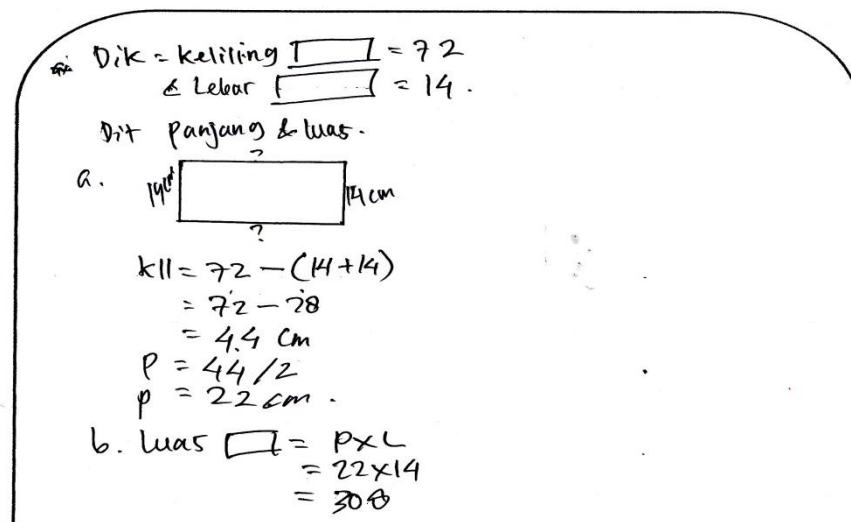 Dik = Keliling = 72
& Lebar = 14.
Dit Panjang & luas.
?
a. 14cm 14 cm
?
kll = 72 - (14+14)
= 72 - 28
= 44 cm
P = 44/2
p = 22 cm.
b. Luas = P×L
= 22×14
= 308